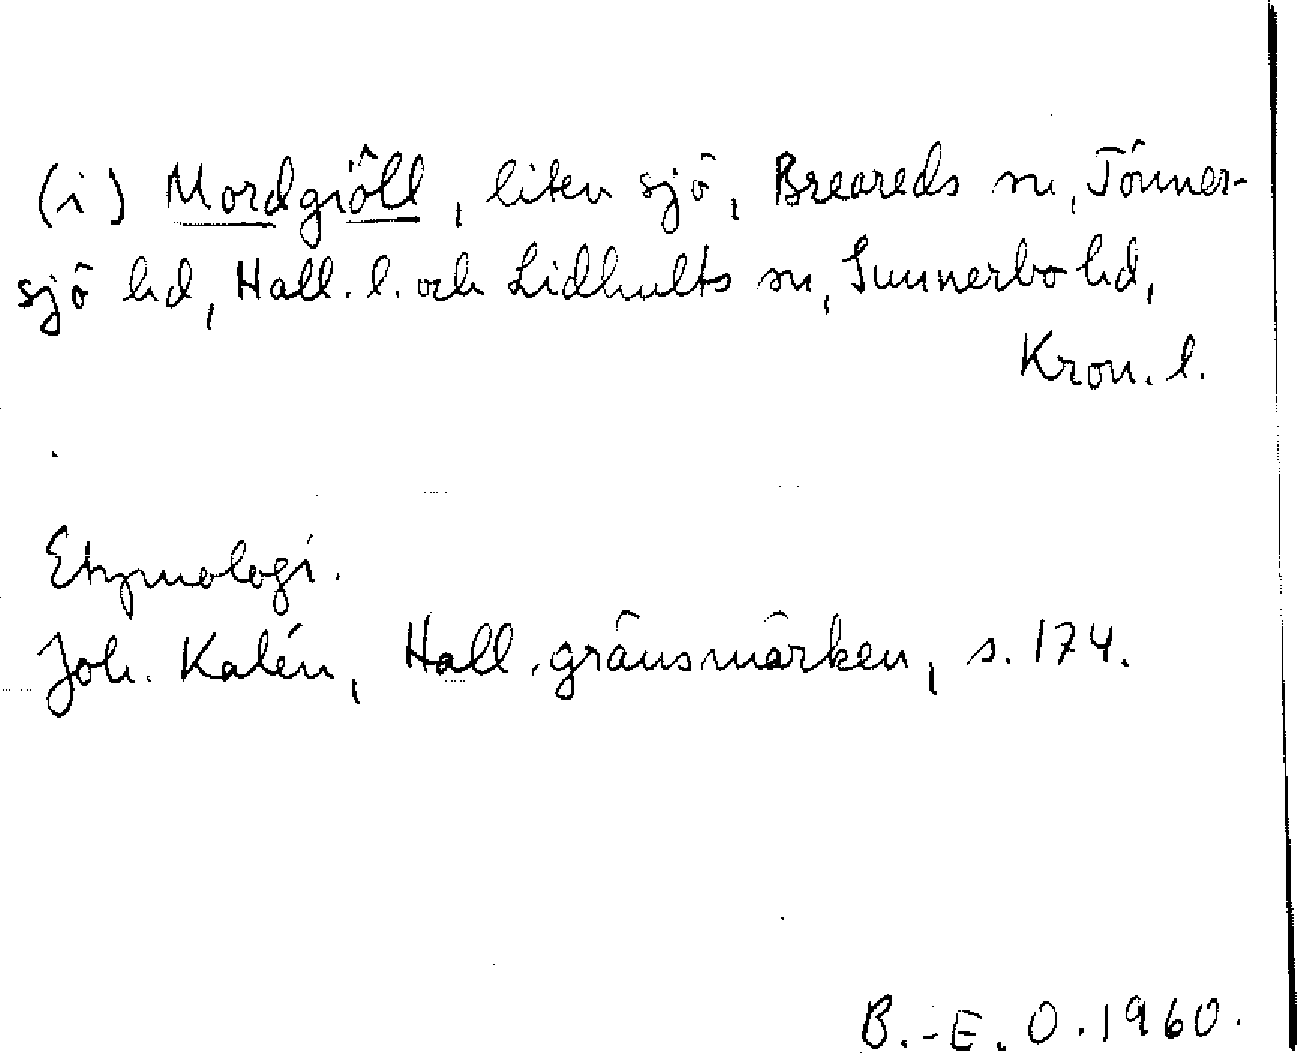 (i) Mordgiöll, liten sjö, Breareds sn, Tönner-
sjö hd, Hall. l. och Lidhults sn, Sunnerbo hd,
Kron. l.
Etymologi.
Joh. Kalén, Hall. gränsmärken, s. 174.
B.-E. O. 1960.